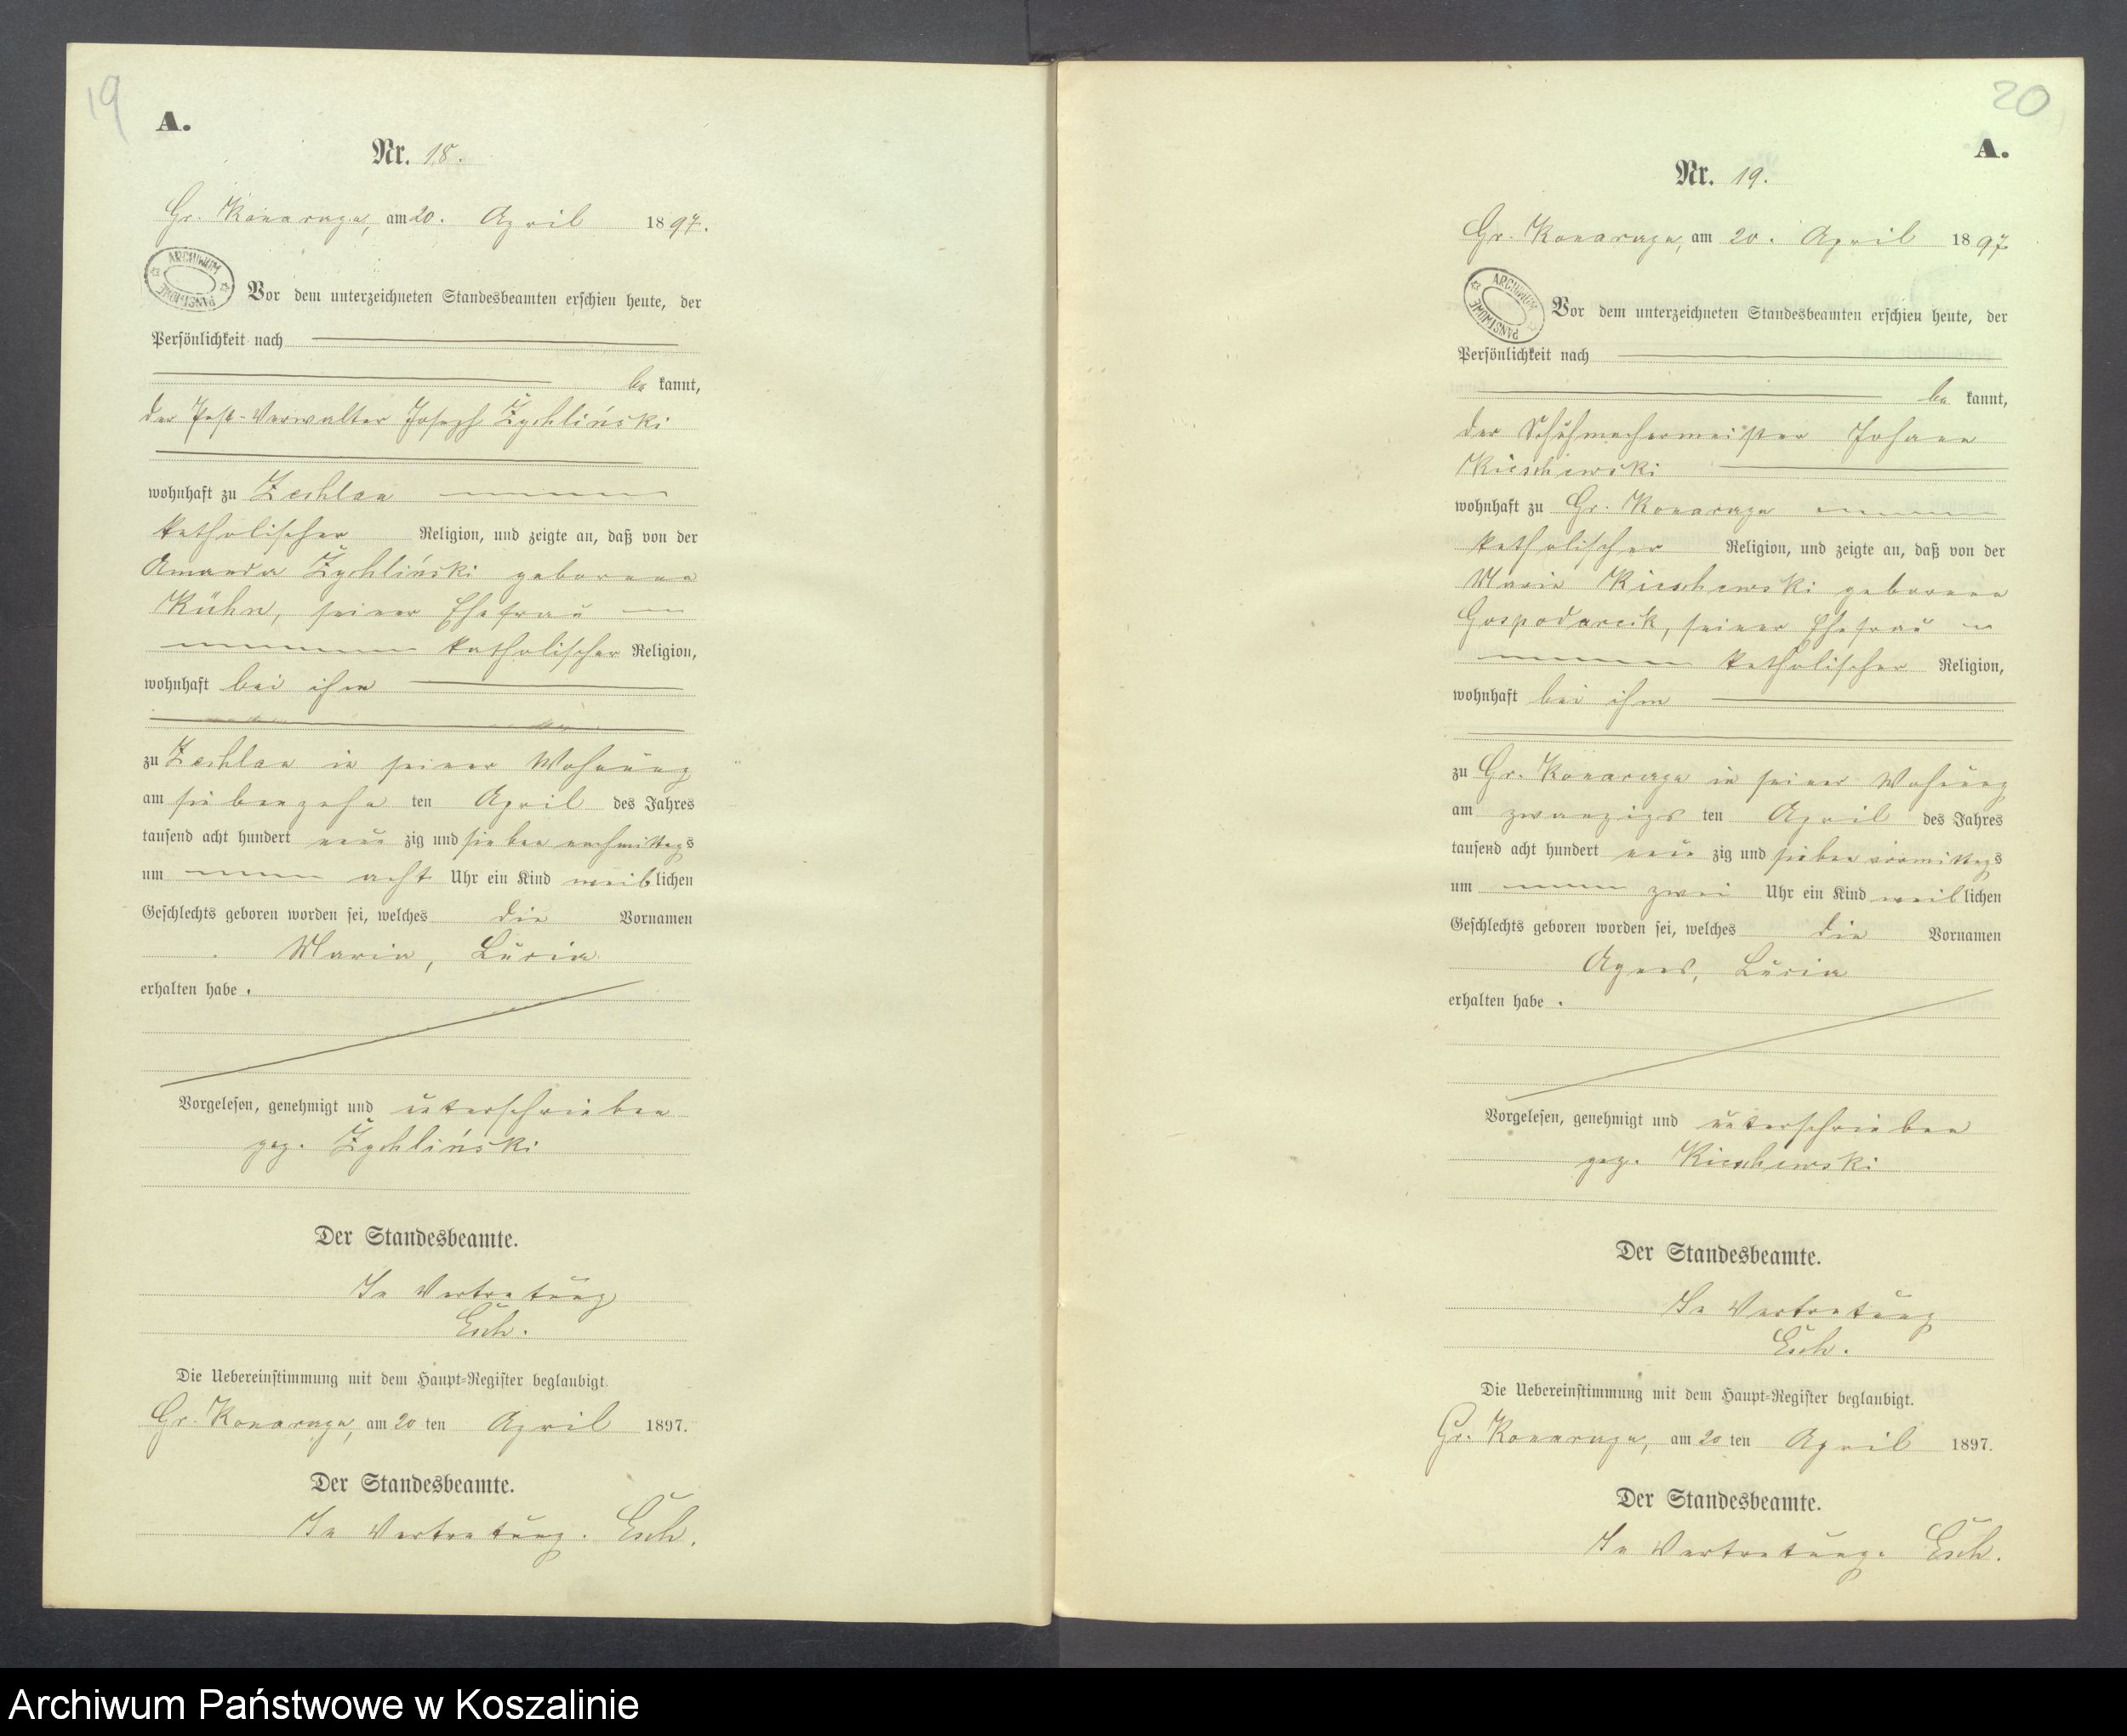 19
A.
Nr. 18.
Gr. Konarzyn, am 20. April 1897.
ARCHIWUM PAŃSTWOWE
Vor dem unterzeichneten Standesbeamten erschien heute, der
Persönlichkeit nach
be kannt,
der Post-Verwalter Joseph Żychliński
wohnhaft zu Zechlau
katholischer Religion, und zeigte an, daß von der
Amanda Żychliński geborene
Kühn, seiner Ehefrau
katholischer Religion,
wohnhaft bei ihm
zu Zechlau in seiner Wohnung
am siebenzehn ten April des Jahres
tausend acht hundert neun zig und sieben nachmittags
um acht Uhr ein Kind weiblichen
Geschlechts geboren worden sei, welches die Vornamen
Maria, Lucia
erhalten habe.
Vorgelesen, genehmigt und unterschrieben
gez. Żychliński
Der Standesbeamte.
In Vertretung
Esch.
Die Uebereinstimmung mit dem Haupt-Register beglaubigt.
Gr. Konarzyn, am 20 ten April 1897.
Der Standesbeamte.
In Vertretung. Esch.
20
A.
Nr. 19.
Gr. Konarzyn, am 20. April 1897
ARCHIWUM PAŃSTWOWE
Vor dem unterzeichneten Standesbeamten erschien heute, der
Persönlichkeit nach
be kannt,
der Schuhmachermeister Johann
wohnhaft zu Gr. Konarzyn
katholischer Religion, und zeigte an, daß von der
Maria geborene
seiner Ehefrau
katholischer Religion,
wohnhaft bei ihm
zu Gr. Konarzyn in seiner Wohnung
am zwanzigs ten April des Jahres
tausend acht hundert neun zig und sieben vormittags
um zwei Uhr ein Kind weiblichen
Geschlechts geboren worden sei, welches die Vornamen
Agnes, Lucia
erhalten habe.
Vorgelesen, genehmigt und unterschrieben
gez.
Der Standesbeamte.
In Vertretung
Esch.
Die Uebereinstimmung mit dem Haupt-Register beglaubigt.
Gr. Konarzyn, am 20 ten April 1897.
Der Standesbeamte.
In Vertretung. Esch.
Archiwum Państwowe w Koszalinie